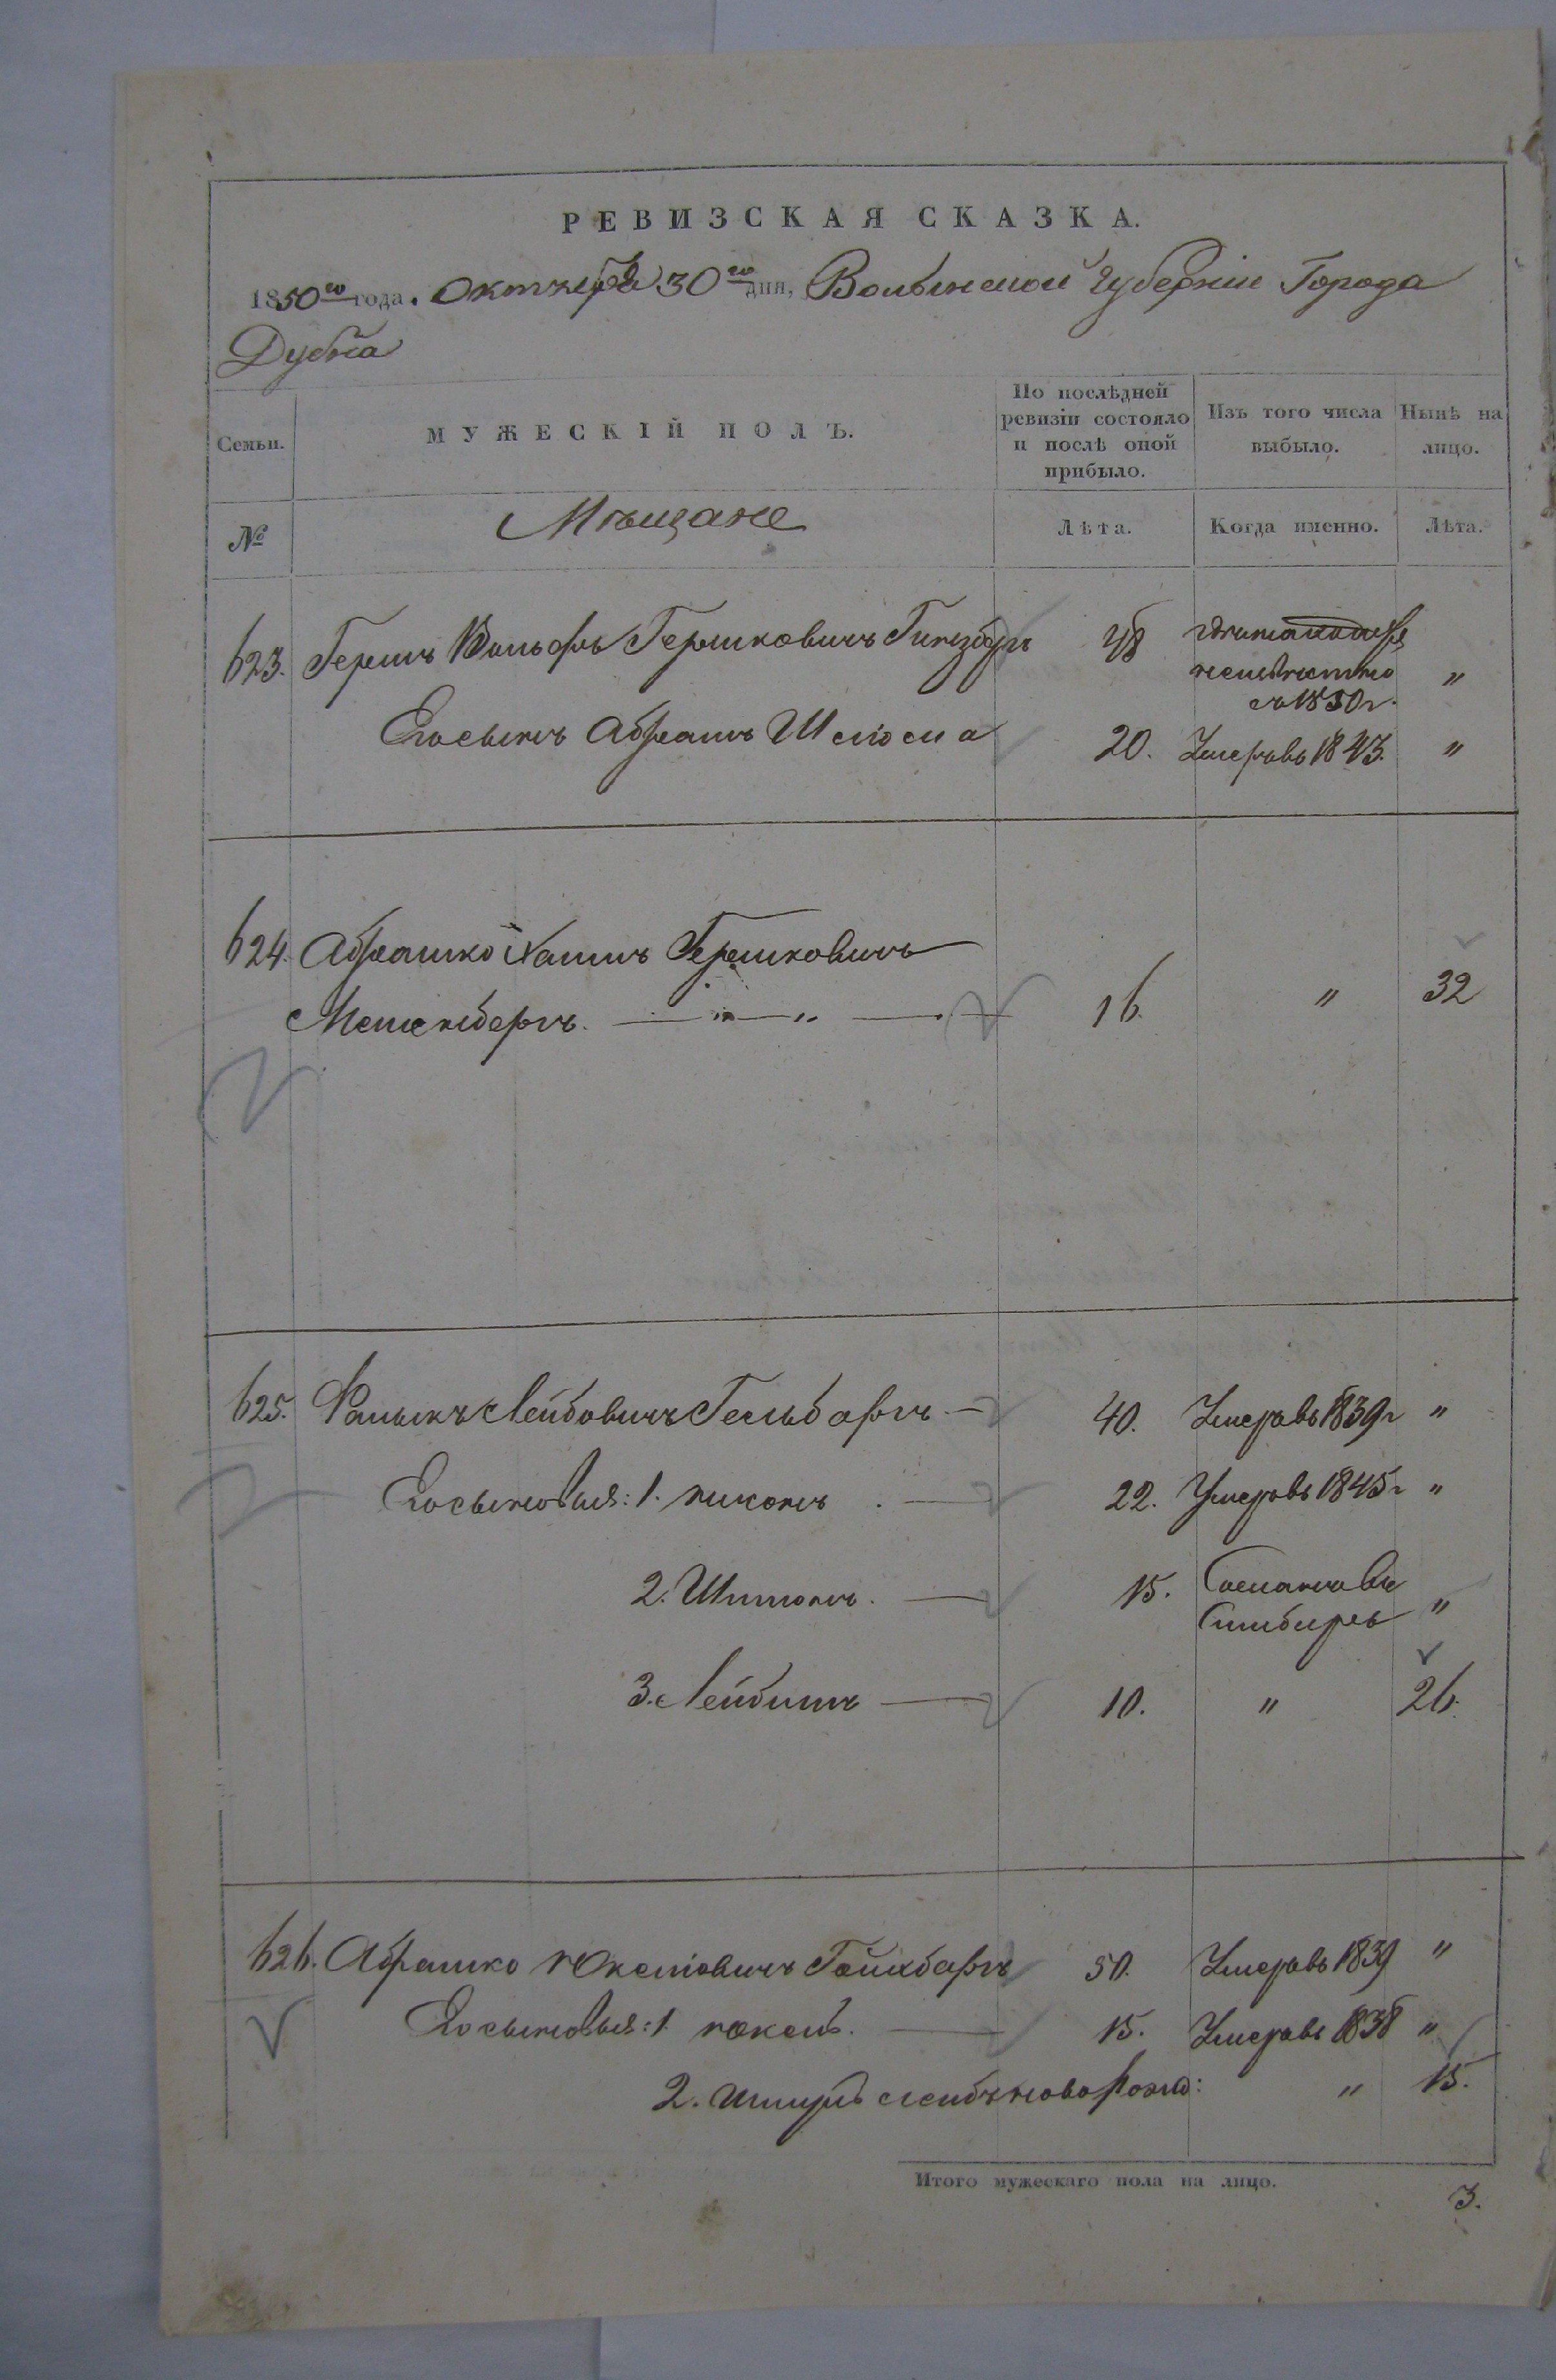 РЕВИЗСКАЯ СКАЗКА.
1850го года. Октября 30го дня, Волынской Губернии Города
Дубна
Семьи.
МУЖЕСКІЙ ПОЛЪ.
По послѣдней
ревизіи состояло
и послѣ оной
прибыло.
Изъ того числа
выбыло.
Нынѣ на
лицо.
№
Мѣщане
Лѣта.
Когда именно.
Лѣта.
623. Гершъ Вольфъ Гершковичъ Гинзбергъ 48
съ 1850г. "
Его сынъ Абрамъ Шлиома 20. Умеръ въ 1843. "
624. Абрашко Хаимъ Гершковичъ
" " 16. " 32
625. Лейбовичъ Гельбаргъ 40. Умеръ въ 1839г "
Его сыновья: 1. 22. Умеръ въ 1845г "
2. 15. Сосланъ въ
Симбирь "
3. Лейбишъ 10. " 26.
626. Абрашко Юкелiовичъ 50. Умеръ въ 1839 "
Его сыновья: 1. 15. Умеръ въ 1838 "
2. лейбъ новорожд: " 15.
Итого мужескаго пола на лицо. 3.